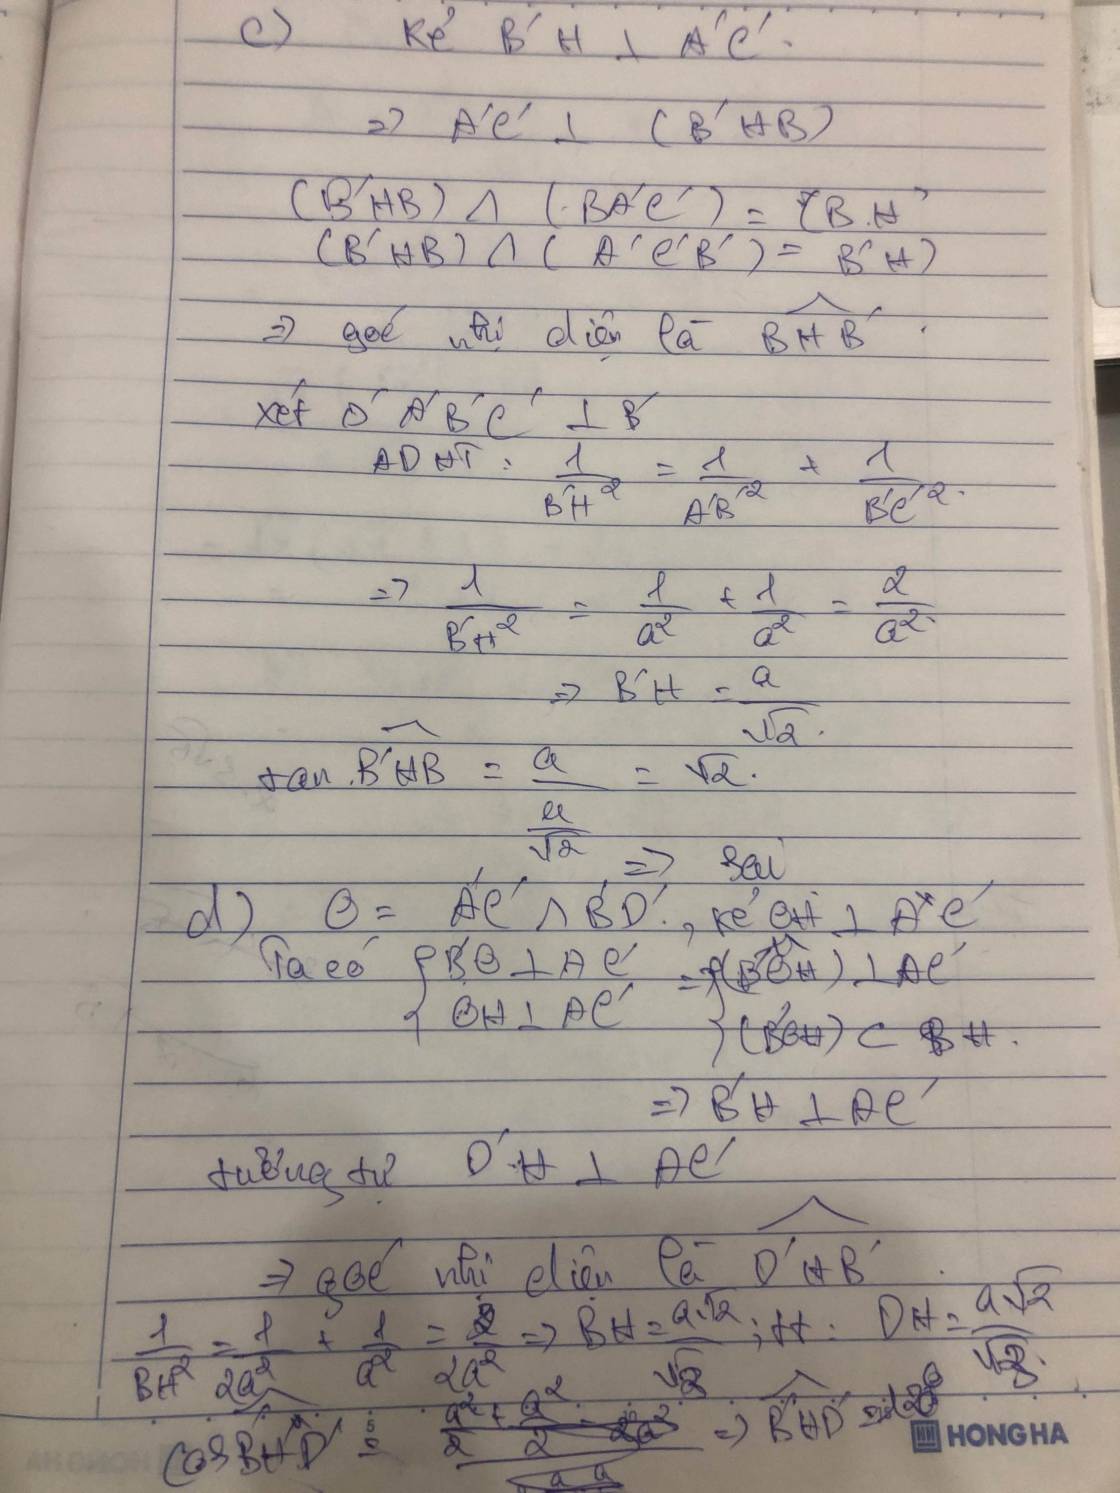 c) Kẻ B'H ⊥ A'C'.
=> A'C' ⊥ (B'HB)
(B'HB) ∧ (BA'C') = (B.H
(B'HB) ∧ (A'C'B') = B'H)
=> goé nhị diện là BHB'.
xét Δ A'B'C' ⊥ B'
ADHT: 1/B'H² = 1/A'B'² + 1/B'C'².
=> 1/B'H² = 1/a² + 1/a² = 2/a².
=> B'H = a/√2.
tan B'HB = a/(a/√2) = √2.
=> sai
d) O = A'C' ∧ B'D'., kẻ OH ⊥ A'C'
Ta có { B'O ⊥ AC' => (B'OH) ⊥ AC'
{ OH ⊥ AC' } (B'OH) ⊂ BH.
=> B'H ⊥ AC'
tương tự D'H ⊥ AC'
=> goé nhị diện là D'HB'.
1/BH² = 1/2a² + 1/a² = 3/2a² => BH = a√2/√3; tt: DH = a√2/√3.
cos B'HD' = => B'HD' = 120°
HONG HA